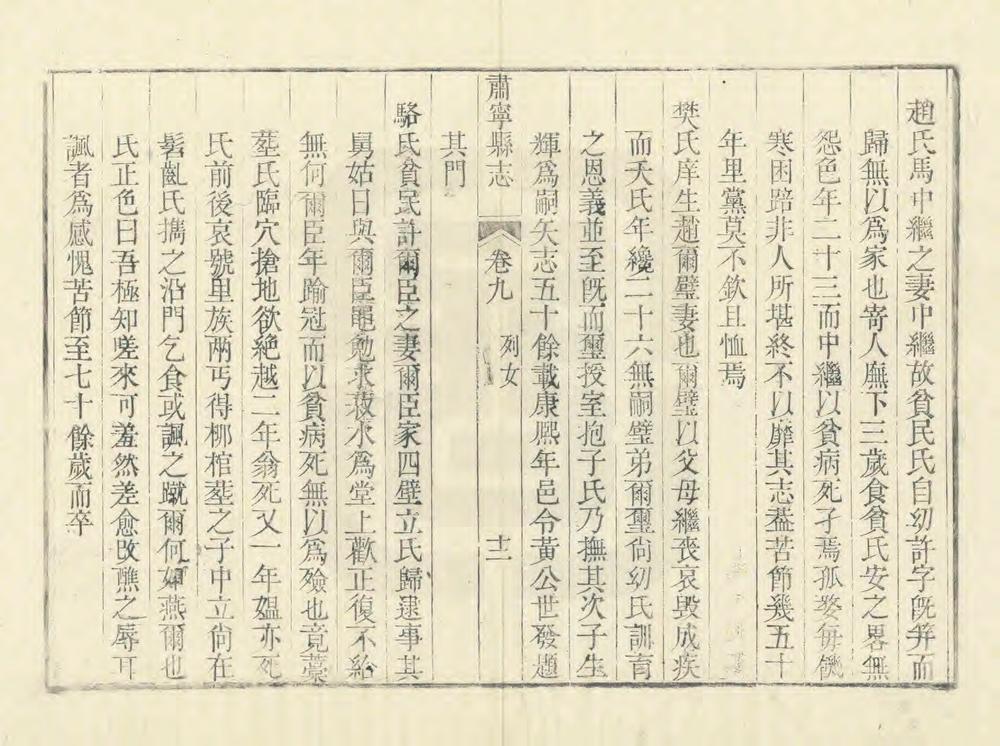 趙氏馬中繼之妻中繼故貧民氏自幼許字旣笄而
歸無以爲家也寄人廡下三歲食貧氏安之畧無
怨色年二十三而中繼以貧病死孑焉孤嫠每饑
寒困踣非人所堪終不以靡其志葢苦節幾五十
年里黨莫不欽且恤焉
樊氏庠生趙爾璧妻也爾璧以父母繼喪哀毀成疾
而夭氏年纔二十六無嗣璧弟爾璽尙幼氏訓育
之恩義並至旣而璽授室抱子氏乃撫其次子生
輝爲嗣矢志五十餘載康熙年邑令黃公世發題
肅寧縣志 卷九 列女 十二
其門
駱氏貧民許爾臣之妻爾臣家四壁立氏歸逮事其
舅姑日與爾臣黽勉求菽水爲堂上歡正復不給
無何爾臣年踰冠而以貧病死無以爲殮也竟藁
塟氏臨穴搶地欲絶越二年翁死又一年媼亦死
氏前後哀號里族兩丐得柳棺塟之子中立尙在
髫齓氏攜之沿門乞食或諷之蹴爾何如燕爾也
氏正色曰吾極知嗟來可羞然差愈改醮之辱耳
諷者爲感愧苦節至七十餘歲而卒